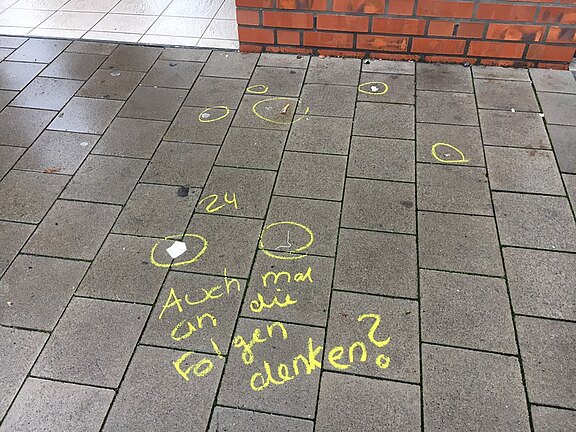 24
Auch mal
an die
Folgen
denken?